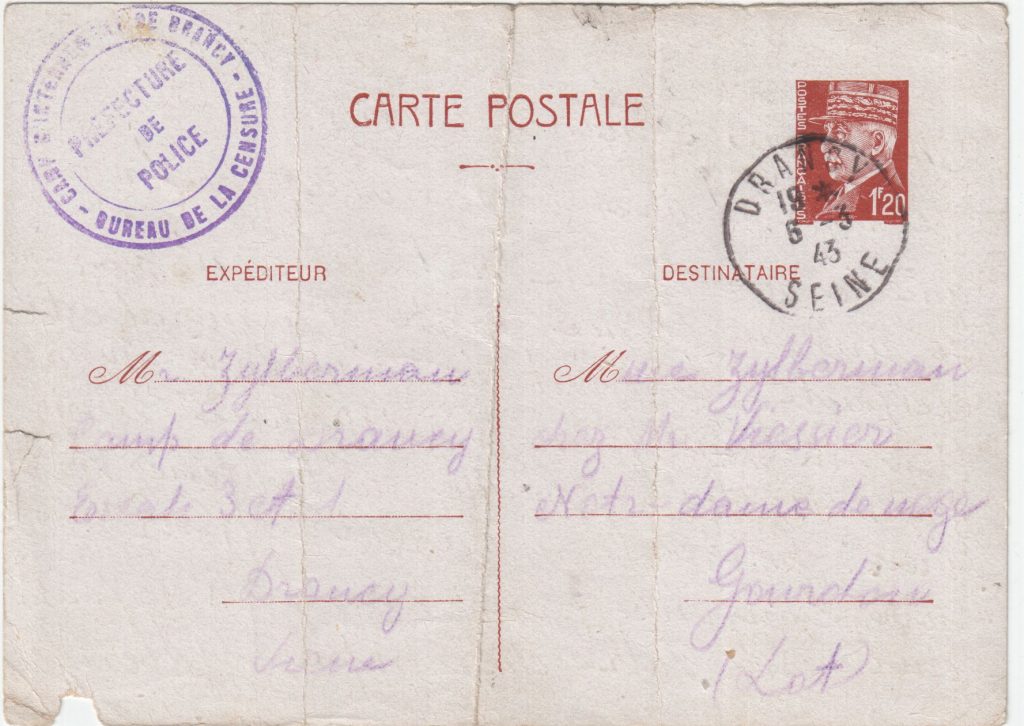 CAMP D'INTERNEMENT DE DRANCY - BUREAU DE LA CENSURE -
PRÉFECTURE
DE
POLICE
CARTE POSTALE
POSTES FRANÇAISES
1F20
DRANCY
19 *
6 - 3
43
SEINE
EXPÉDITEUR
Mr Zylberman
Camp de Drancy
3 A 1
Drancy
Seine
DESTINATAIRE
Mme Zylberman
chez Mr
Notr-dame de nege
Gourdon
(Lot)